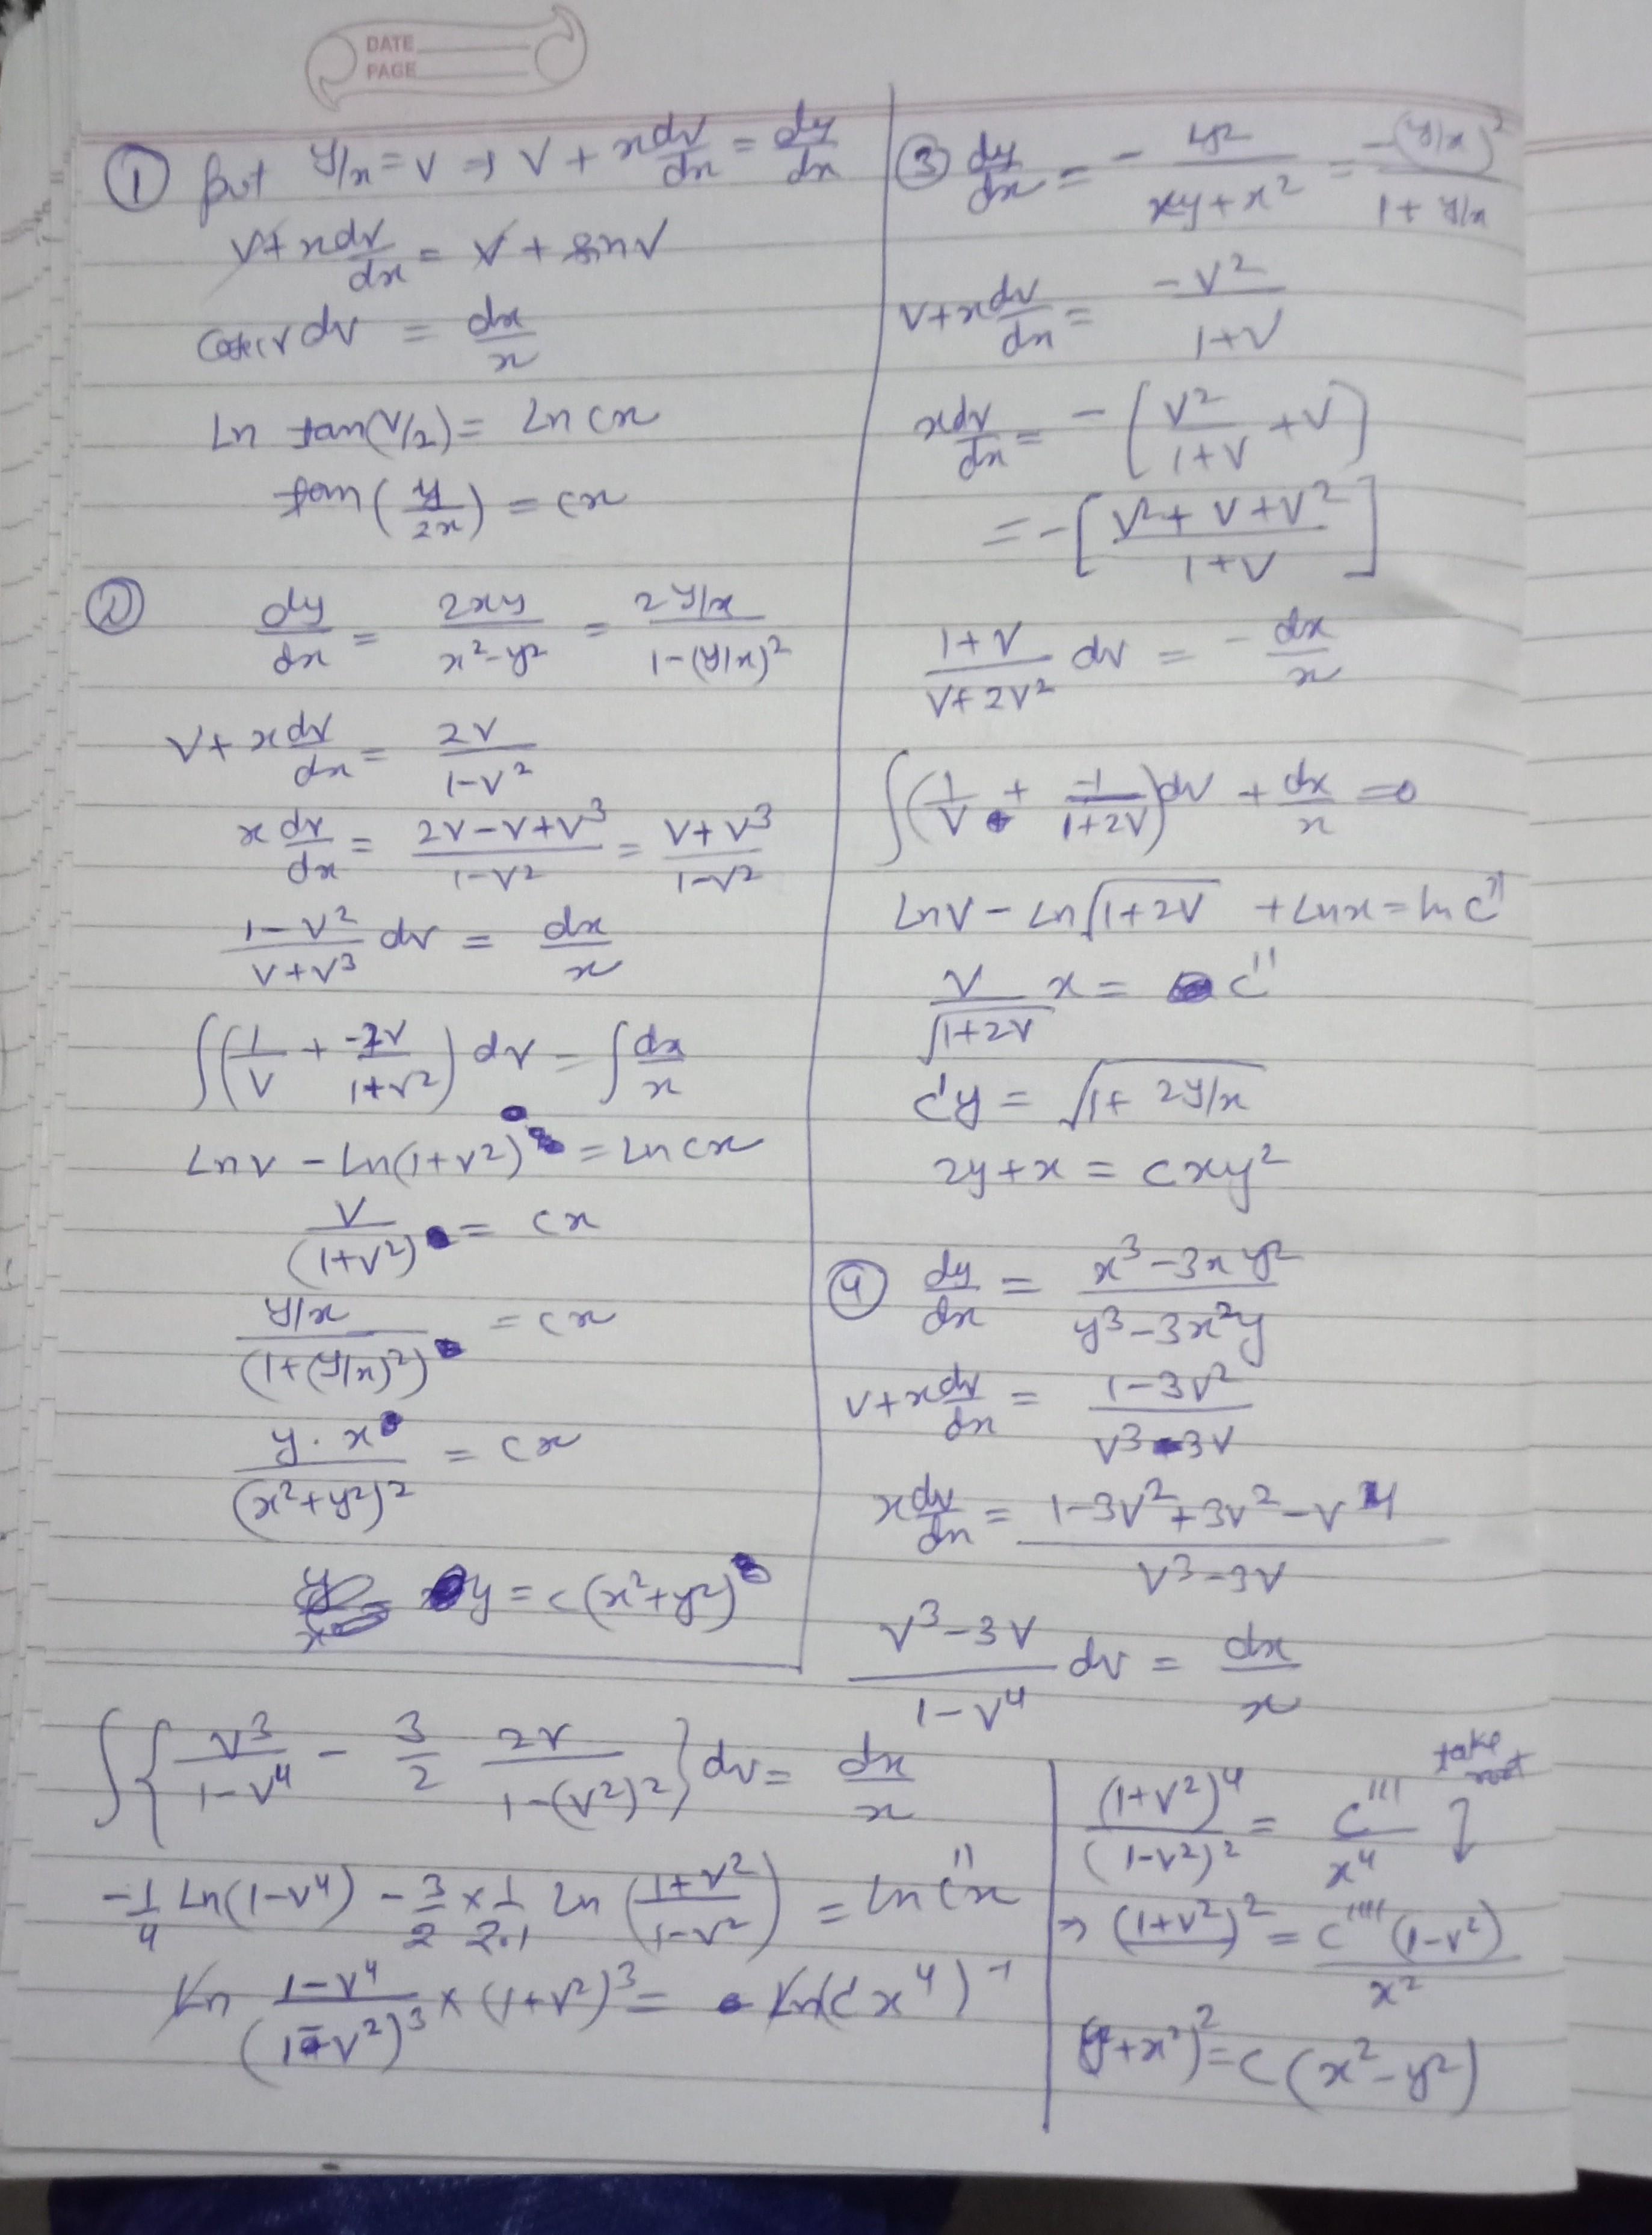 DATE
PAGE
① Put y/x = v ⇒ v + x dv/dx = dy/dx
v + x dv/dx = v + sin v
cosec v dv = dx/x
Ln tan(v/2) = Ln cx
tan(y/2x) = cx
② dy/dx = 2xy/(x²-y²) = 2 y/x / (1-(y/x)²)
v + x dv/dx = 2v/(1-v²)
x dv/dx = (2v-v+v³)/(1-v²) = (v+v³)/(1-v²)
(1-v²)/(v+v³) dv = dx/x
∫(1/v + -2v/(1+v²)) dv = ∫ dx/x
Ln v - Ln(1+v²) = Ln cx
v/(1+v²) = cx
y/x / (1+(y/x)²) = cx
y·x / (x²+y²)² = cx
y = c(x²+y²)
③ dy/dx = - y²/(xy+x²) = -(y/x)²/(1+y/x)
v + x dv/dx = -v²/(1+v)
x dv/dx = -(v²/(1+v) + v)
= -[(v²+v+v²)/(1+v)]
(1+v)/(v+2v²) dv = - dx/x
∫(1/v + -1/(1+2v)) dv + dx/x = 0
Ln v - Ln √(1+2v) + Ln x = ln c''
v/√(1+2v) x = c''
c'y = √(1+2y/x)
2y+x = cxy²
④ dy/dx = (x³-3xy²)/(y³-3x²y)
v + x dv/dx = (1-3v²)/(v³-3v)
x dv/dx = (1-3v²+3v²-v⁴)/(v³-3v)
(v³-3v)/(1-v⁴) dv = dx/x
∫{v³/(1-v⁴) - 3/2 2v/(1-(v²)²)} dv = dx/x
-1/4 Ln(1-v⁴) - 3/2 × 1/2.1 Ln((1+v²)/(1-v²)) = Ln c''x
Ln (1-v⁴)/(1-v²)³ × (1+v²)³ = Ln(c'x⁴)⁻¹
(1+v²)⁴/(1-v²)² = c'''/x⁴ take root
⇒ (1+v²)² = c''''(1-v²)/x²
(y²+x²)² = c(x²-y²)